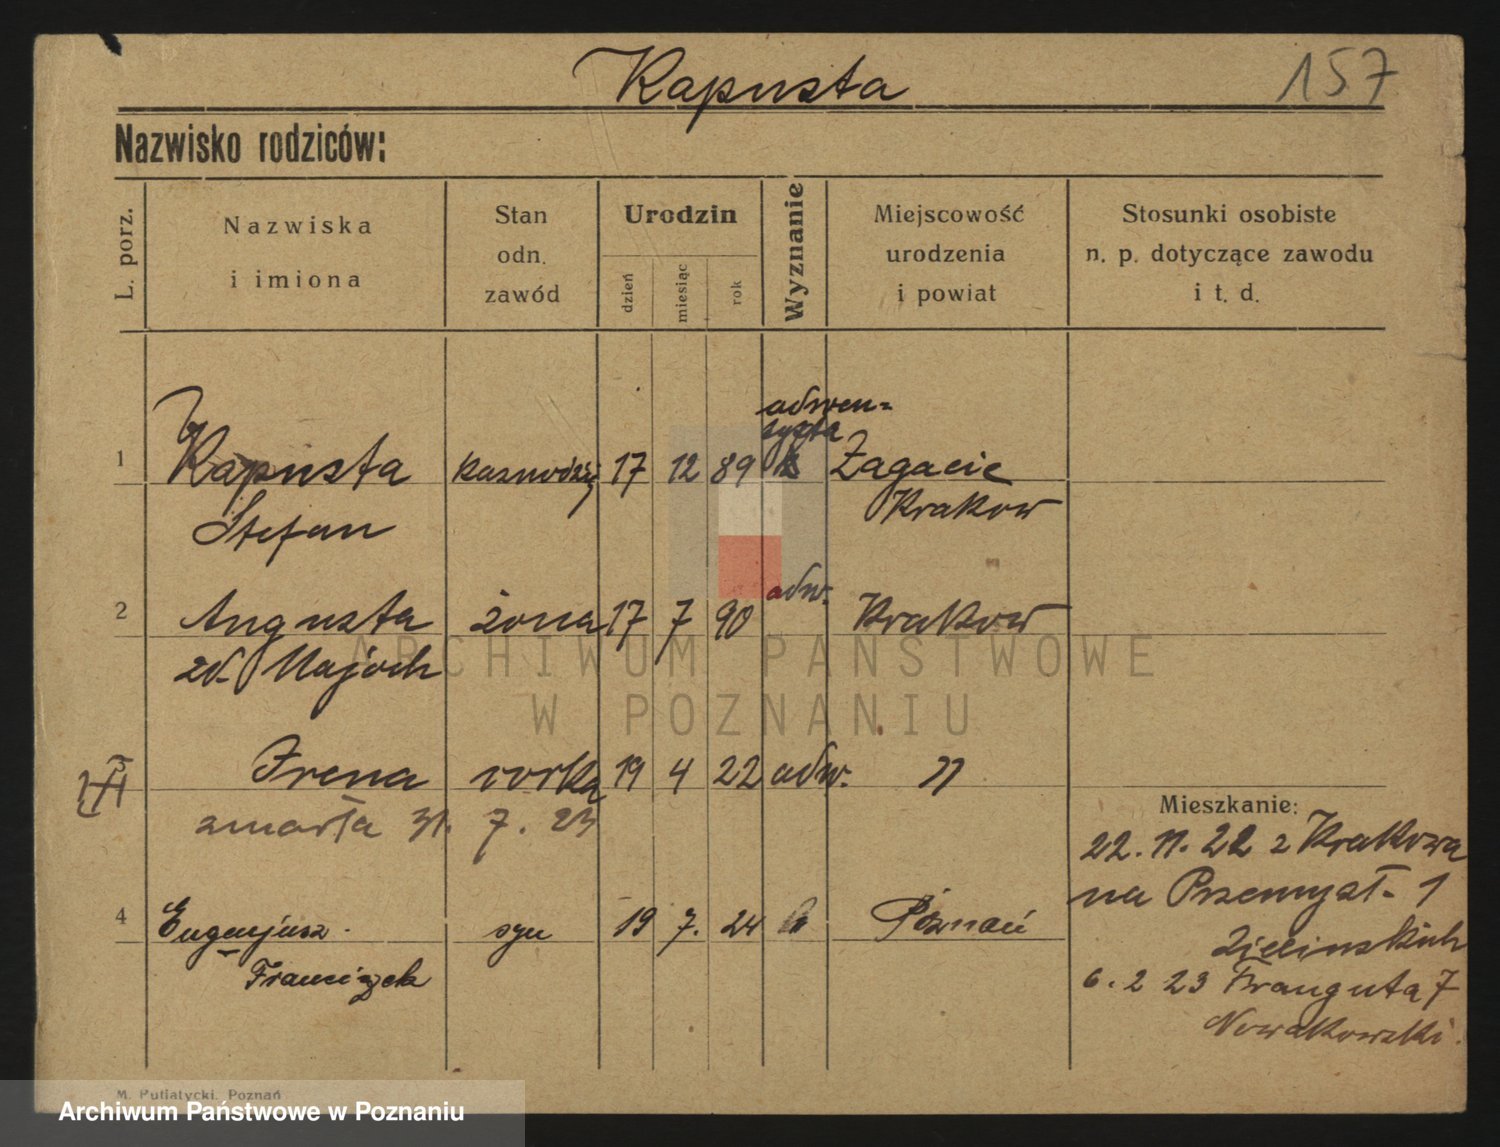 Kapusta 157
Nazwisko rodziców:
L. porz.
Nazwiska
i imiona
Stan
odn.
zawód
Urodzin
dzień
miesiąc
rok
Wyznanie
Miejscowość
urodzenia
i powiat
Stosunki osobiste
n. p. dotyczące zawodu
i t. d.
adwen-
tysta
1 Kapusta kaznodziej 17 12 89 Zagacie
Stefan Krakow
adw.
2 Augusta żona 17 7 90 Krakow
zd. Majoch
3 Irena corka 19 4 22 adw. "
zmarła 31. 7. 23
Mieszkanie:
22. 11. 22 z Krakowa
na Przemysł. 1
Zielinskich
4 Eugenjusz syn 19 7. 24 Poznań
Franciszek
6. 2 23 Franguta 7
Nowakowski.
M. Putiatycki, Poznań
ARCHIWUM PAŃSTWOWE
W POZNANIU
Archiwum Państwowe w Poznaniu